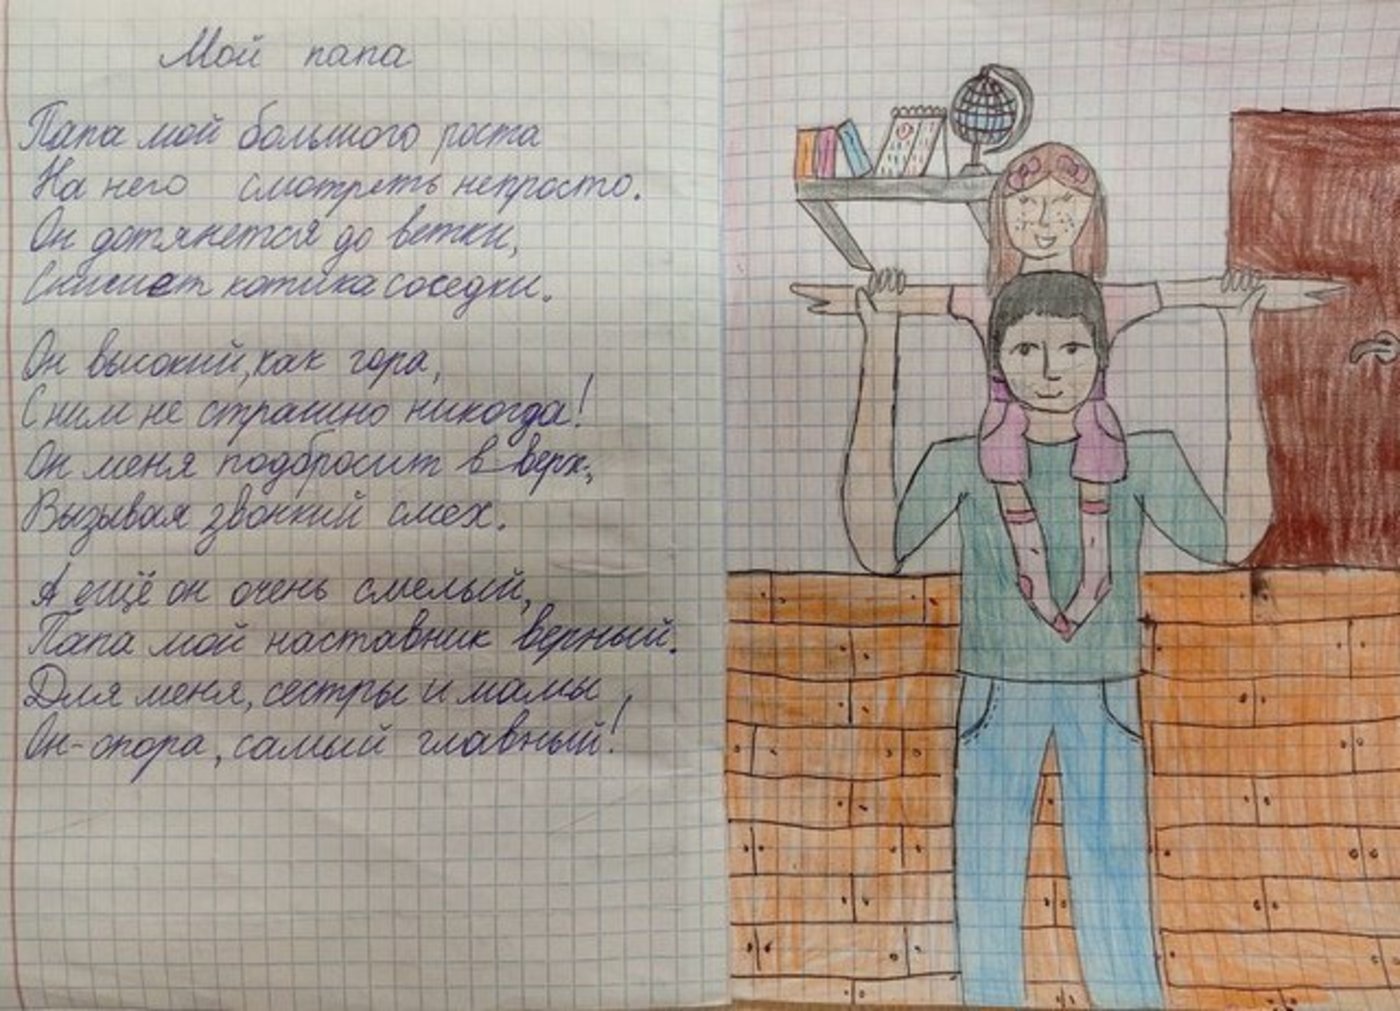 Мой папа
Папа мой большого роста
На него смотреть непросто.
Он дотянется до ветки,
Снимет котика соседки.
Он высокий, как гора,
С ним не страшно никогда!
Он меня подбросит в верх,
Вызывая звонкий смех.
А ещё он очень смелый,
Папа мой наставник верный.
Для меня, сестры и мамы,
Он - опора, самый главный!